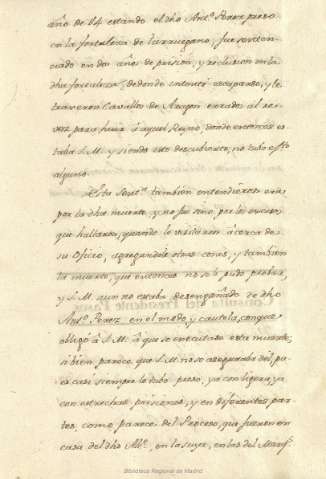 año de 84 estando el dho Ant.º Perez preso
en la fortaleza de Turruegano, fue senten-
ciado en dos años de prision, y reclusion en la
dha fortaleza, de donde intentó escaparse, y le
traxeron Cavallos de Aragon errados al re-
vez para huir á aquel Reyno, donde entonces es-
taba S. M. y siendo esto descubierto, no tubo efto
alguno.
Esta Sent.ª tambien entendieron era
por la dha muerte, y no fue sino por los excesos
que hallaron, quando le visitaron acerca de
su Oficio, agregandole otras cosas, y tambien
la muerte, que entonces no se le pudo probar,
y S. M. aun no estaba desengañado de dho
Ant.º Perez en el modo, y cautela, con que
obligó á S. M. á que se executase esta muerte,
si bien parece que S. M. no se aseguraba del, pu
es casi siempre le tubo preso, ya con ligera, ya
con estrechas prisiones, y en diferentes par-
tes, como parece del Proceso, que fueron en
casa del dho Alc.e, en la suya, en las del Marq.s
Biblioteca Regional de Madrid